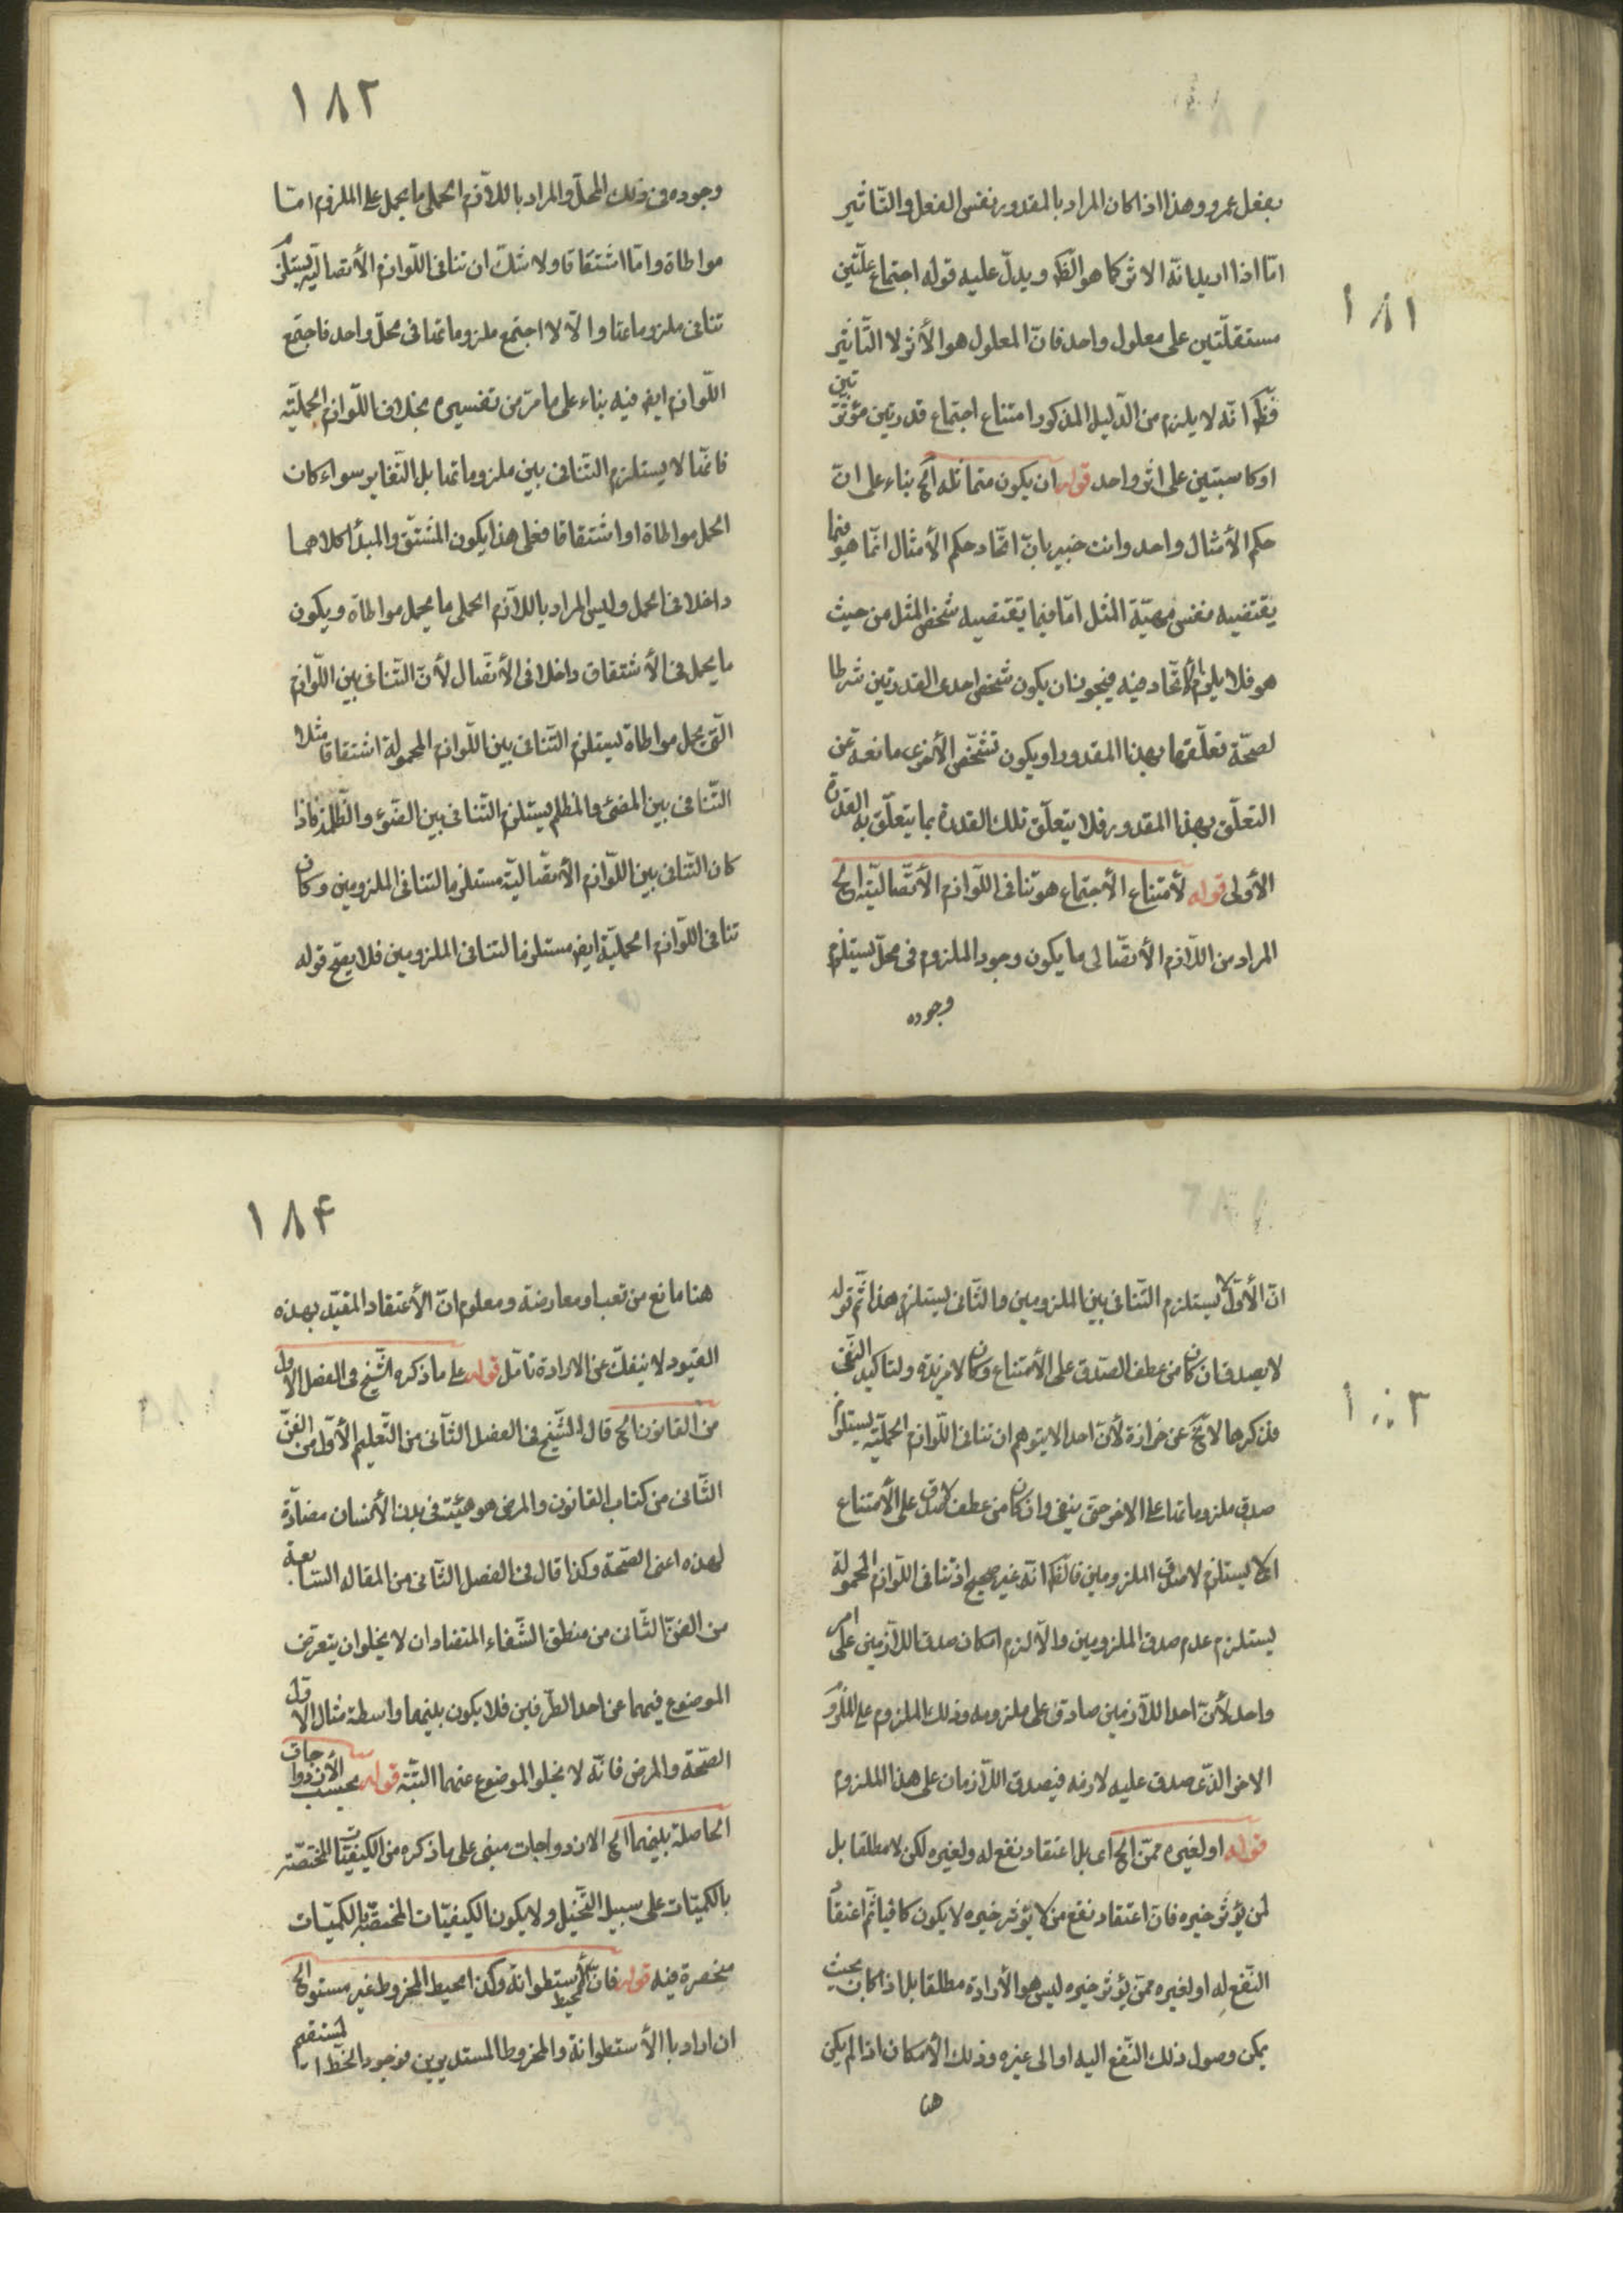 ١٨١
بفعل عمرو وهذا اذا كان المراد بالمقدور نفس الفعل والتّاثير
امّا اذا اريد انّه الاثر كما هو الظّ ويدلّ عليه قوله اجتماع علّتين
مستقلّتين على معلول واحد فانّ المعلول هو الأثر لا التّاثير
فظهر انّه لا يلزم من الدّليل المذكور امتناع اجتماع قدرتين مؤثّرتين
او كاسبتين على اثر واحد قوله ان يكون متماثله الخ بناء على انّ
حكم الأمثال واحد وانت خبير بانّ اتّحاد حكم الأمثال انّما هو فيما
يقتضيه نفس مهيّة المثل امّا فيما تقتضيه شخص المثل من حيث
هو فلا يلزم الأتّحاد فيه فيجوز ان يكون شخص احدى القدرتين شرطا
لصحّة تعلّقها بهذا المقدور او يكون تشخّص الأخرى مانعة عن
التعلّق بهذا المقدور فلا يتعلّق تلك القدرة بما يتعلّق به القدرة
الأولى قوله لأمتناع الأجتماع هو تنافى اللّوازم الأتّصاليّة الخ
المراد من اللّازم الأتصّالى ما يكون وجود الملزوم فى محلّ يستلزم
وجوده
١٨٢
وجوده فى ذلك المحلّ والمراد باللّازم الحملى ما يحمل على الملزوم امّا
مواطاة وامّا اشتقاقا ولا شكّ ان تنافى اللّوازم الأتصاليّه يستلزم
تنافى ملزوماتها والّا لاجتمع ملزوماتها فى محلّ واحد فاجتمع
اللّوازم ايض فيه بناء على ما مرّ من تفسيره بخلاف اللّوازم الحمليّه
فانّها لا يستلزم التّنافى بين ملزوماتها بل التّغاير سواء كان
الحمل مواطاة او اشتقاقا فعلى هذا يكون المشتقّ والمبدأ كلاهما
داخلا فى الحمل وليس المراد باللّازم الحملى ما يحمل مواطاة ويكون
ما يحمل فى الأشتقاق داخلا فى الأتصّال لأنّ التّنافى بين اللّوازم
الّتى يحمل مواطاة يستلزم التّنافى بين اللّوازم المحمولة اشتقاقا مثلا
التّنافى بين المضئ والمظلم يستلزم التّنافى بين الضّوء والظّلمة فاذا
كان التّنافى بين اللّوازم الأتصّاليّة مستلزما لتنافى الملزومين وكان
تنافى اللّوازم الحمليّة ايض مستلزما لتنافى الملزومين فلا يصّح قوله
١٨٣
انّ الأوّل لا يستلزم التّنافى بين الملزومين والثّانى يستلزم هذا ثمّ قوله
لا يصدق ان كان من عطف الصّدق على الأمتناع وكان لا مزيدة ولتاكيد النّفى
فذكرها لا يخ عن حزازة لأنّ احدا لا يتوهم ان تنافى اللّوازم الحمليّه يستلزم
صدق ملزوماتها على الاخر حتى ينفى وان كان من عطف لا صدق على الأمتناع
اى لا يستلزم لا صدق الملزومين فالظّ انّه غير صحيح اذ تنافى اللّوازم المحمولة
يستلزم عدم صدق الملزومين والّا لزم امكان صدق اللّازمين على امر
واحد لأنّ احد اللّازمين صادق على ملزومه وذلك الملزوم على الملزوم
الاخر الّذى صدق عليه لازمه فيصدق اللّازمان على هذا الملزوم
قوله او لغيره ممّن الخ اى بل اعتقاد نفع له ولغيره لكن لا مطلقا بل
لمن يؤثر خيره فانّ اعتقاد نفع من لا يؤثر خيره لا يكون كافيا ثمّ اعتقاد
النّفع له او لغيره ممّن يؤثر خيره ليس هو الأرادة مطلقا بل اذا كان بحيث
يمكن وصول ذلك النّفع اليه او الى غيره وذلك الأمكان اذا لم يكن
هنا
١٨٤
هنا مانع من تعب او معارضة ومعلوم انّ الأعتقاد المقيّد بهذه
القيود لا ينفكّ عن الارادة تأمّل قوله على ما ذكره الشّيخ فى الفصل الاول
من القانون الخ قال الشّيخ فى الفصل الثّانى من التّعليم الأوّل من الفنّ
الثّانى من كتاب القانون والمرض هو هيئة فى بدن الأنسان مضادّة
لهذه اعنى الصّحة وكذا قال فى الفصل الثّانى من المقاله السّابعة
من الفنّ الثّانى من منطق الشّفاء المتضادان لا يخلو ان يتعرّى
الموضوع فيهما عن احد الطّرفين فلا يكون بينهما واسطة مثال الاول
الصّحة والمرض فانّه لا يخلو الموضوع عنهما البتّة قوله بحسب الأزدواجات
الحاصلة بينهما الخ الازدواجات مبنى على ما ذكره من الكيفيّات المختصّة
بالكميّات على سبيل التّخييل ولا يكون الكيفيّات المختصّة بالكميّات
منحصرة فيه قوله فان محيط الأستطوانة وكذا محيط المخروط غير مستو الخ
ان اراد با الأستطوانة والمخروط المستديرين فوجود الخطّ المستقيم